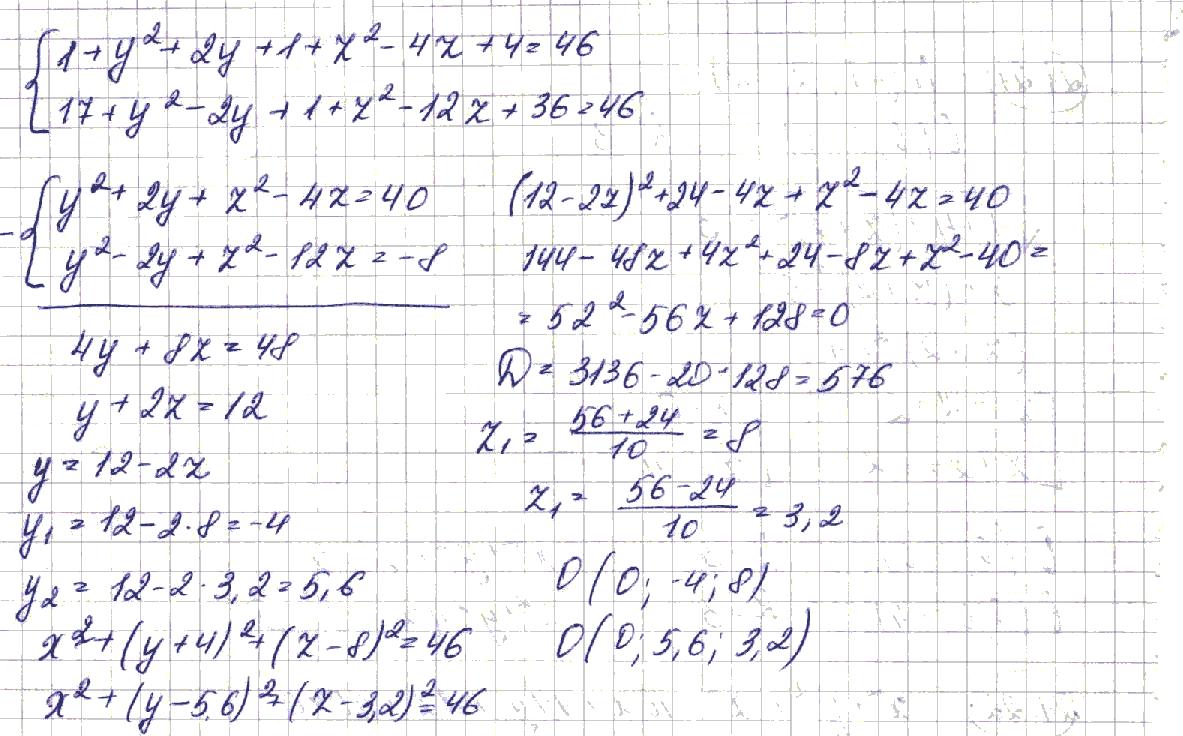 1 + y² + 2y + 1 + z² - 4z + 4 = 46
17 + y² - 2y + 1 + z² - 12z + 36 = 46
y² + 2y + z² - 4z = 40
y² - 2y + z² - 12z = -8
4y + 8z = 48
y + 2z = 12
y = 12 - 2z
y₁ = 12 - 2·8 = -4
y₂ = 12 - 2·3,2 = 5,6
x² + (y+4)² + (z-8)² = 46
x² + (y-5,6)² + (z-3,2)² = 46
(12-2z)² + 24 - 4z + z² - 4z = 40
144 - 48z + 4z² + 24 - 8z + z² - 40 =
= 5z² - 56z + 128 = 0
D = 3136 - 20·128 = 576
z₁ = (56+24)/10 = 8
z₁ = (56-24)/10 = 3,2
O(0; -4; 8)
O(0; 5,6; 3,2)